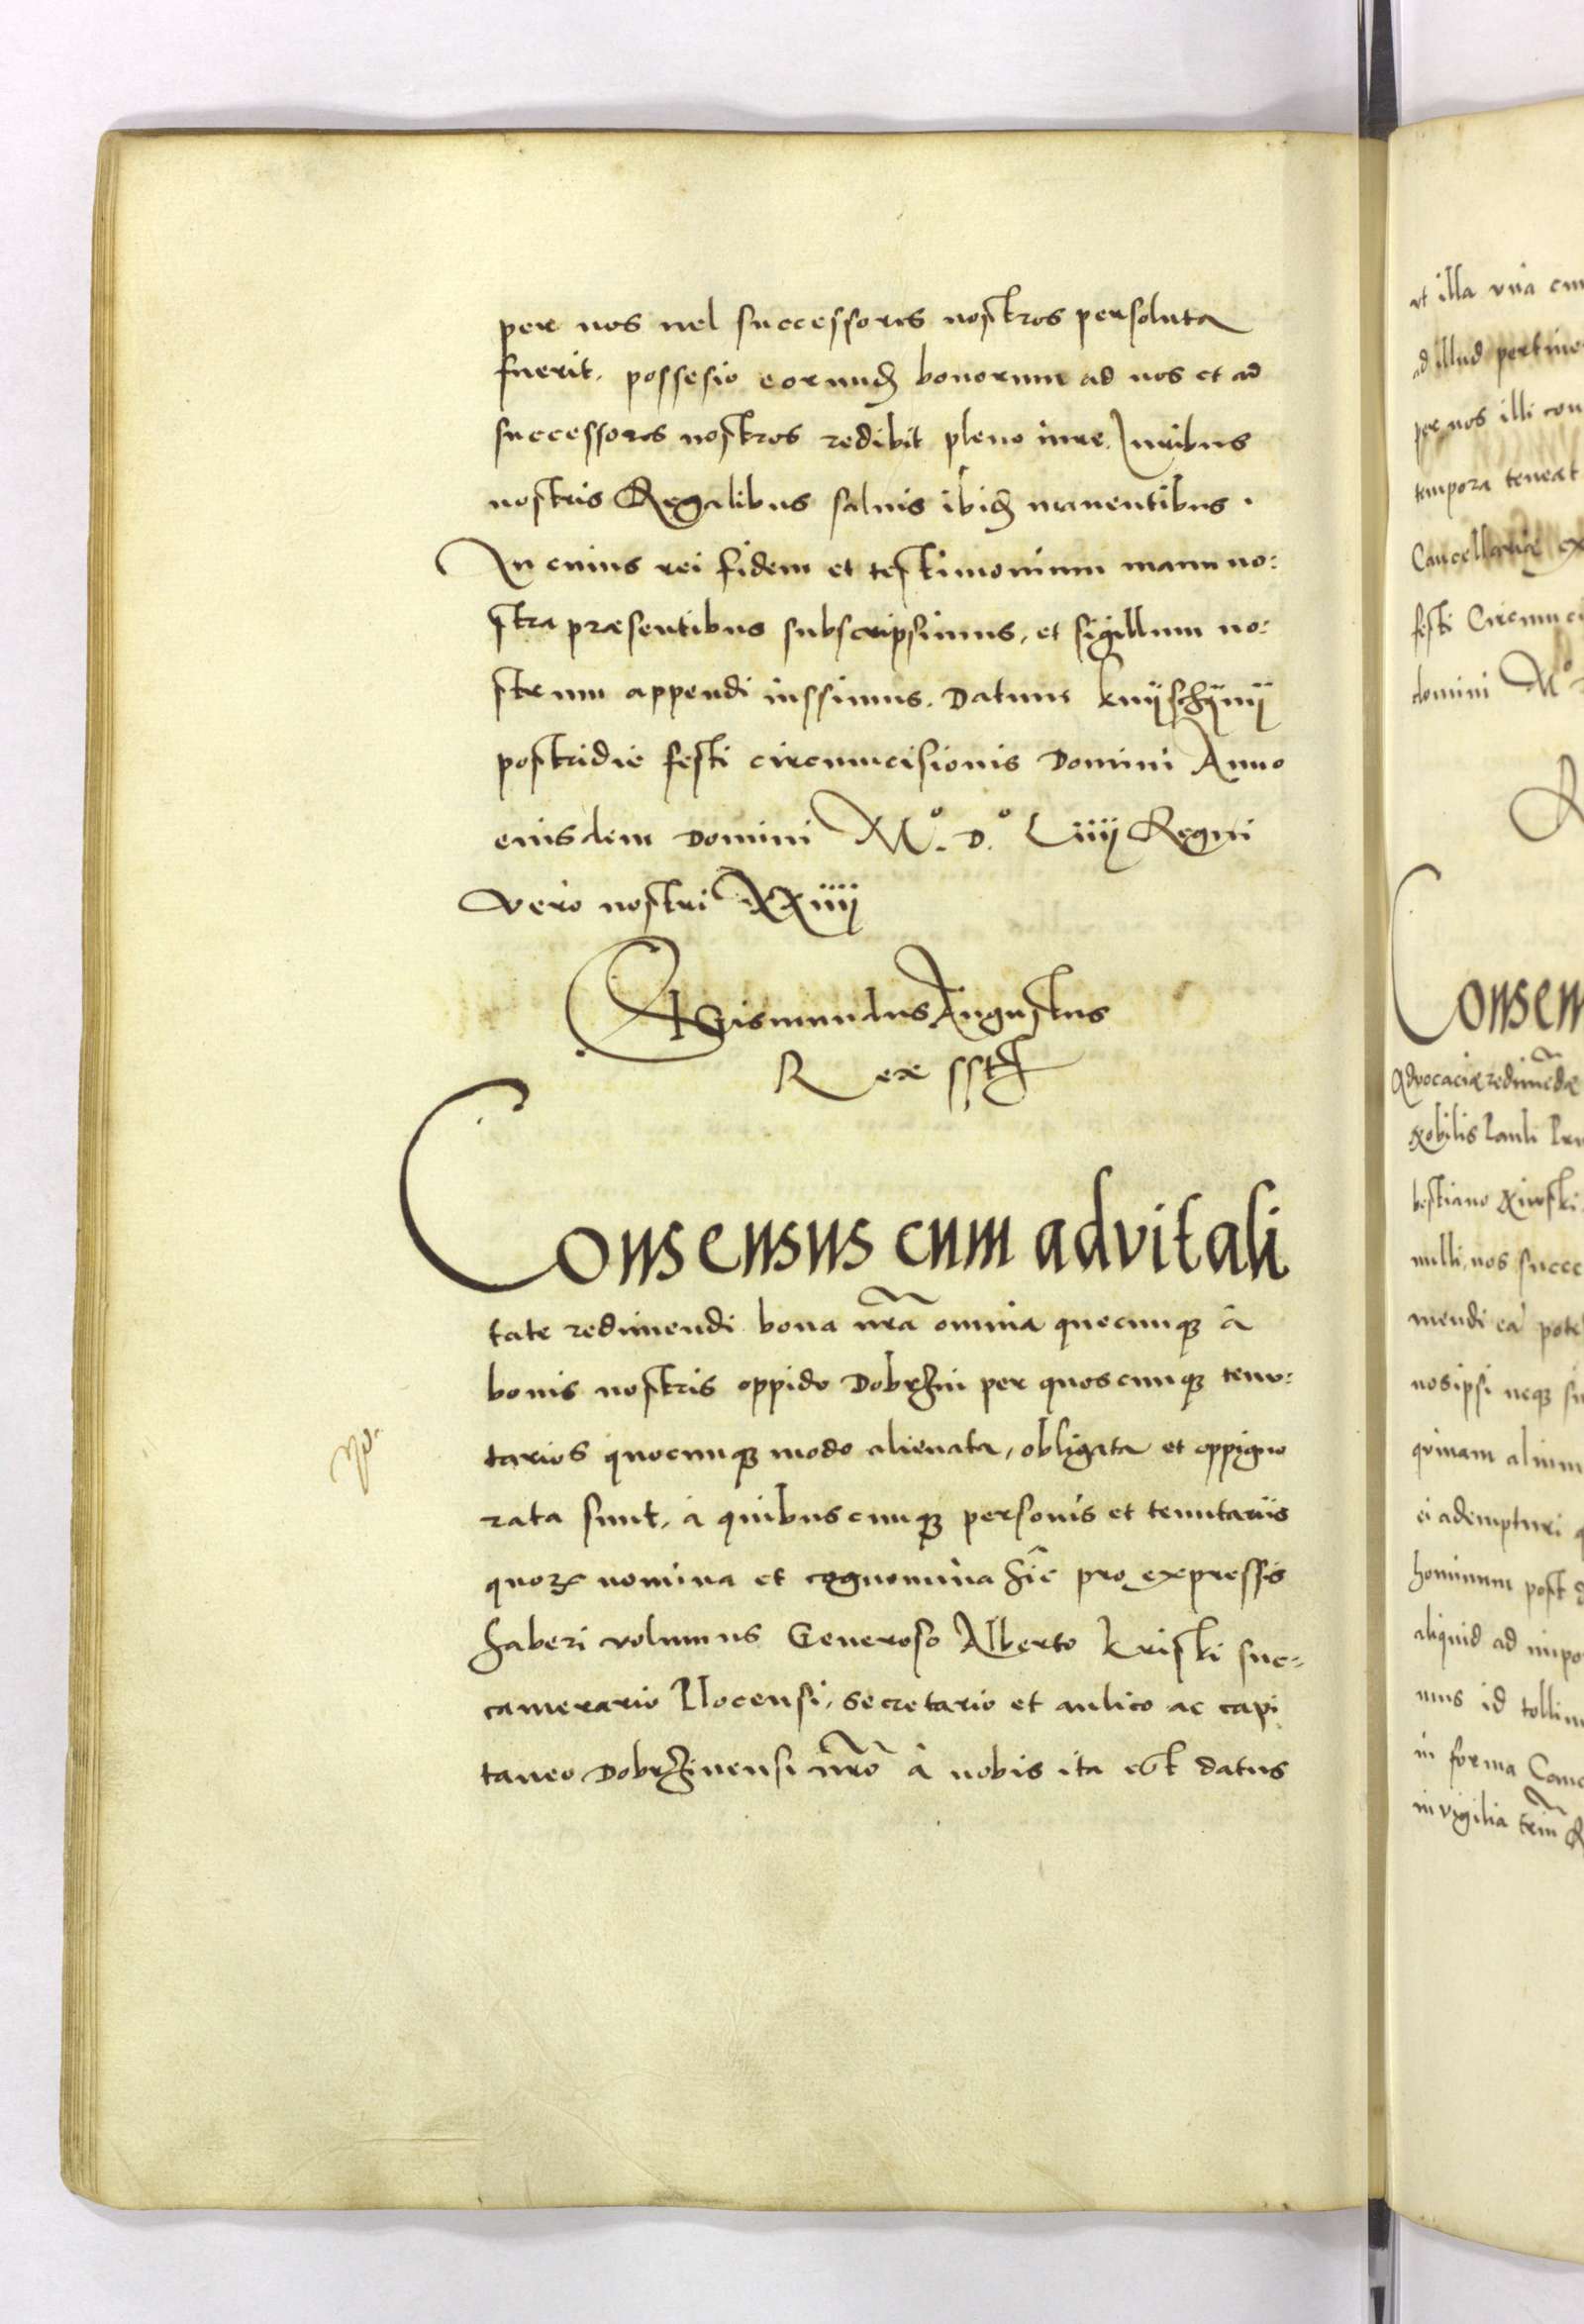 per nos uel successores nostros persoluta
fuerit, possesio eorundẽ bonorum ad nos et ad
successores nostros redibit pleno iure, Iuribus
nostris Regalibus saluis ibidẽ manentibus.
In cuius rei fidem et testimonium manu no:
stra præsentibus subscripsimus, et sigillum no:
strum appendi iussimus. Datum knÿschÿnÿ
postridie festi circumcisionis Domini Anno
eiusdem Domini M.º D.º Liiij Regni
vero nostri XXiiij
Sigismundus Augustus
Rex sst
Consensus cum advitali
tate redimendi bona nrã omnia quecunq; â
bonis nostris oppido Dobrzin per quoscunq; tenu:
tarios quocunq; modo alienata, obligata et oppigno
rata sunt, à quibuscunq; personis et tenutariis
quorꝝ nomina et cognomina hîc pro expressis
haberi volumus Generoso Alberto kriski suc=
camerario Plocensi, Secretario et aulico ac capi
taneo Dobrzinensi nrõ à nobis ita est datus
ut illa vna cum
ad illud pertine
per nos illi con
tempora teneat
Cancellariæ ex
festi Circumci
domini Mº
Consen
Advocaciæ redimẽdæ
Nobilis Pauli
bestiano
nulli, nos succe
mendi eã pote
nos ipsi neq; su
quinam alium
ei adempturi
hominum post
aliquid ad
mus id tollim
in forma Canc
in vigilia trium